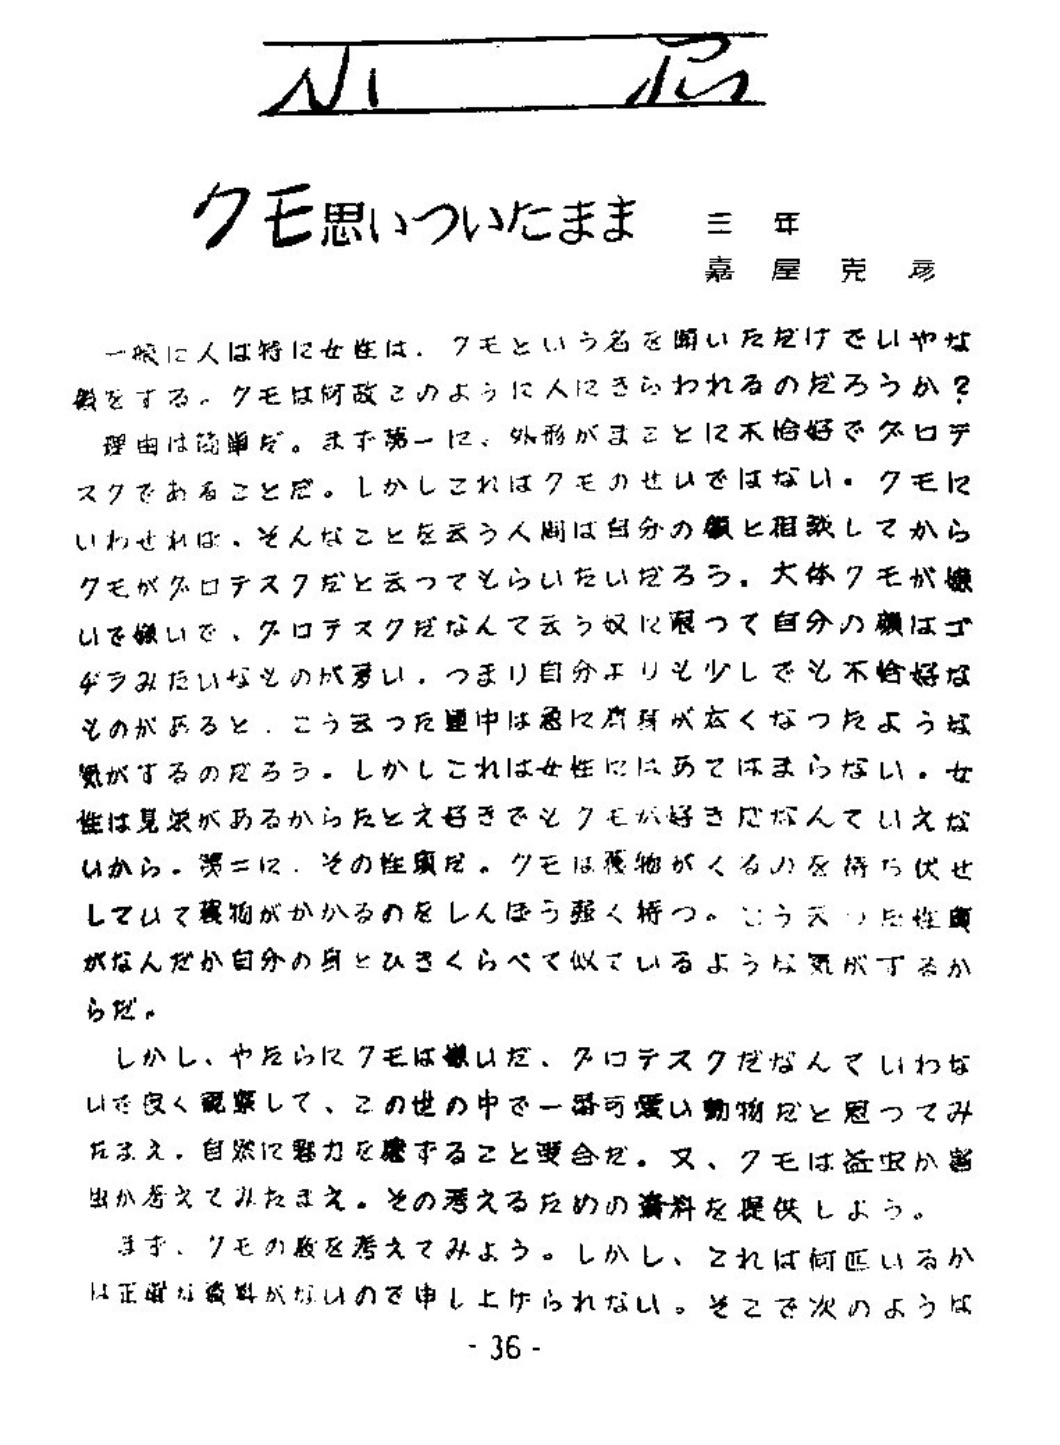 小 径
クモ思いついたまま 三 年
嘉 屋 克 彦
一般に人は特に女性は、クモという名を聞いただけでいやな
顔をする。クモは何故このように人にきらわれるのだろうか?
理由は簡単だ。まず第一に、外形がまことに不恰好でグロテ
スクであることだ。しかしこれはクモのせいではない。クモに
いわせれば、そんなことを云う人間は自分の顔と相談してから
クモがグロテスクだと云ってもらいたいだろう。大体クモが嫌
いで嫌いで、グロテスクだなんて云う奴に限って自分の顔はゴ
ヂラみたいなものが多い。つまり自分よりも少しでも不恰好な
ものがあると、こう云った連中は急に肩身が広くなったような
気がするのだろう。しかしこれは女性にはあてはまらない。女
性は見栄があるからたとえ好きでもクモが好きだなんていえな
いから。第二に、その性質だ。クモは獲物がくるのを待ち伏せ
していて獲物がかかるのをしんぼう強く待つ。こう云った性質
がなんだか自分の身とひきくらべて似ているような気がするか
らだ。
しかし、やたらにクモは嫌いだ、グロテスクだなんていわな
いで良く観察して、この世の中で一番可愛い動物だと思ってみ
たまえ。自然に魅力を感ずること受合だ。又、クモは益虫か害
虫か考えてみたまえ。その考えるための資料を提供しよう。
まず、クモの数を考えてみよう。しかし、これは何匹いるか
は正確な資料がないので申し上げられない。そこで次のような
- 36 -